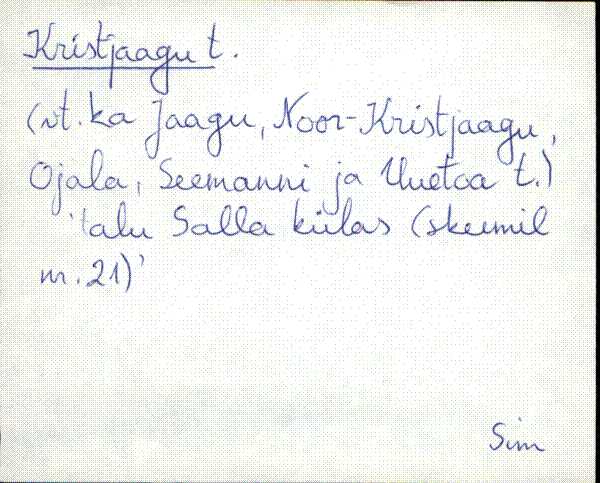 Kristjaagu t.
(vt. ka Jaagu, Noor-Kristjaagu,
Ojala, Seemanni ja Uuetoa t.)
'talu Salla külas (skeemil
nr. 21)'
Sim